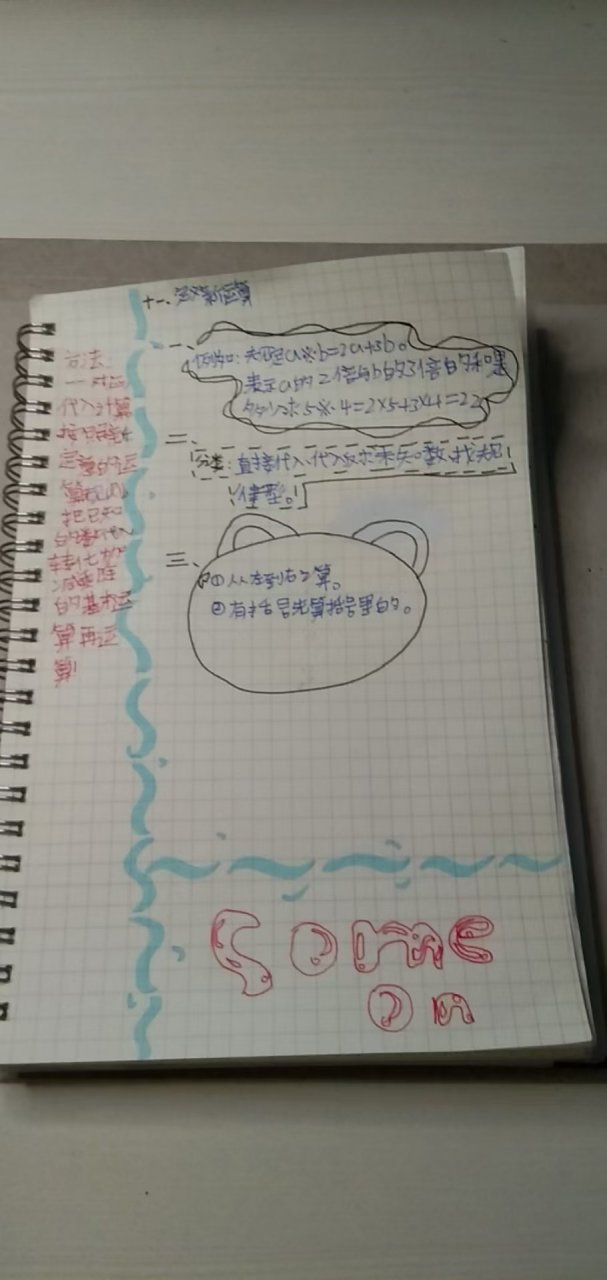 十一、定义新运算
一、例如:规定a※b=2a+3b。
表示a的2倍与b的3倍的和
所以求5※4=2×5+3×4=22
二、分类:直接代入、代入反求未知数、找规
律型。
三、①从左到右算。
②有括号先算括号里的。
方法
代入计算
按照
定义的运
算
把已知
的数代入
转化
的基本运
算再运
算
Come
on